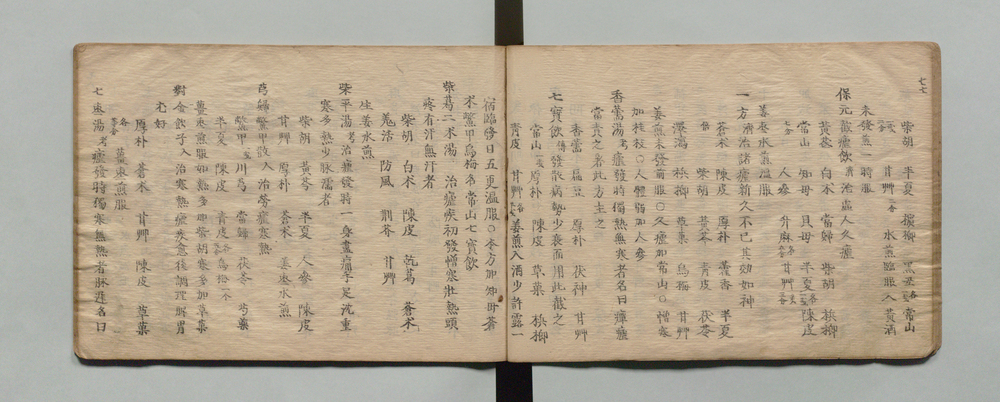 七七
柴胡 半夏 檳榔 黑豆 常山
甘艸 水煎臨服入黃酒
未發煎一時服
保元截瘧飲 治虛人久瘧
黃芪 白朮 當歸 柴胡 檳榔
常山 知母 貝母 半夏 陳皮
人參 升麻 甘艸
姜枣水煎溫服
一方 治諸瘧新久不已其効如神
蒼朮 陳皮 厚朴 藿香 半夏
柴胡 黃芩 青皮 茯苓
澤瀉 檳榔 草菓 烏梅 甘艸
姜煎未發前服〇久瘧加常山〇憎寒
加桂枝〇人體弱加人參
香薷湯 考瘧發時獨熱無寒者名曰癉瘧
當責之暑此方主之
香薷 扁豆 厚朴 茯神 甘艸
七寶飲 傳發散病勢少衰而用此截之
常山 厚朴 陳皮 草菓 檳榔
青皮 甘艸 姜煎入酒少許露一
宿臨發日五更溫服〇本方加知母蒼
朮鱉甲烏梅名常山七寶飲
柴葛二朮湯 治瘧疾初發憎寒壯熱頭
疼有汗無汗者
柴胡 白朮 陳皮 乾葛 蒼朮
羌活 防風 荊芥 甘艸
生姜水煎
柴平湯 考治瘧發時一身盡痛手足沈重
寒多熱少脉濡者
柴胡 黃芩 半夏 人參 陳皮
甘艸 厚朴 蒼朮 姜枣水煎
芎歸鱉甲散 入 治勞瘧寒熱
鱉甲 川芎 當歸 茯苓 芍藥
半夏 陳皮 青皮 烏梅一个
薑枣煎服如熱多加柴胡寒多加草菓
對金飲子 入 治寒熱瘧疾愈後調理脾胃
尤好
厚朴 蒼朮 甘艸 陳皮 草菓
薑枣煎服
七枣湯 考瘧發時獨寒無熱者脉遲名曰